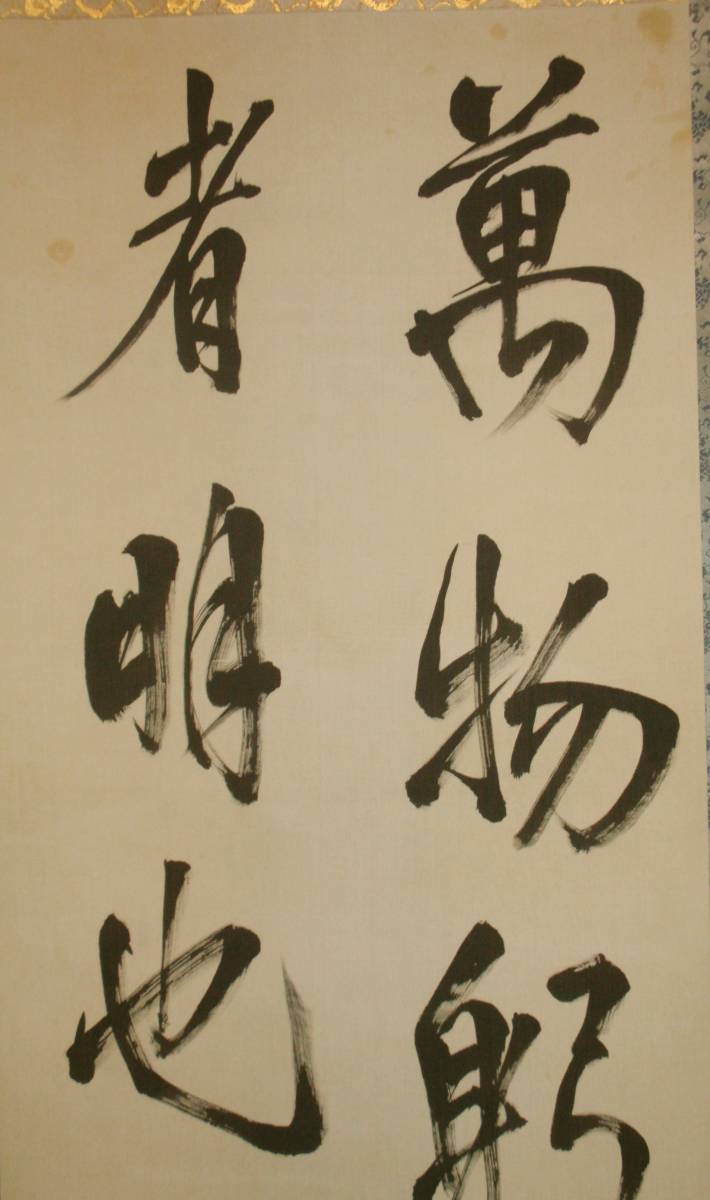 萬物躬
者明也